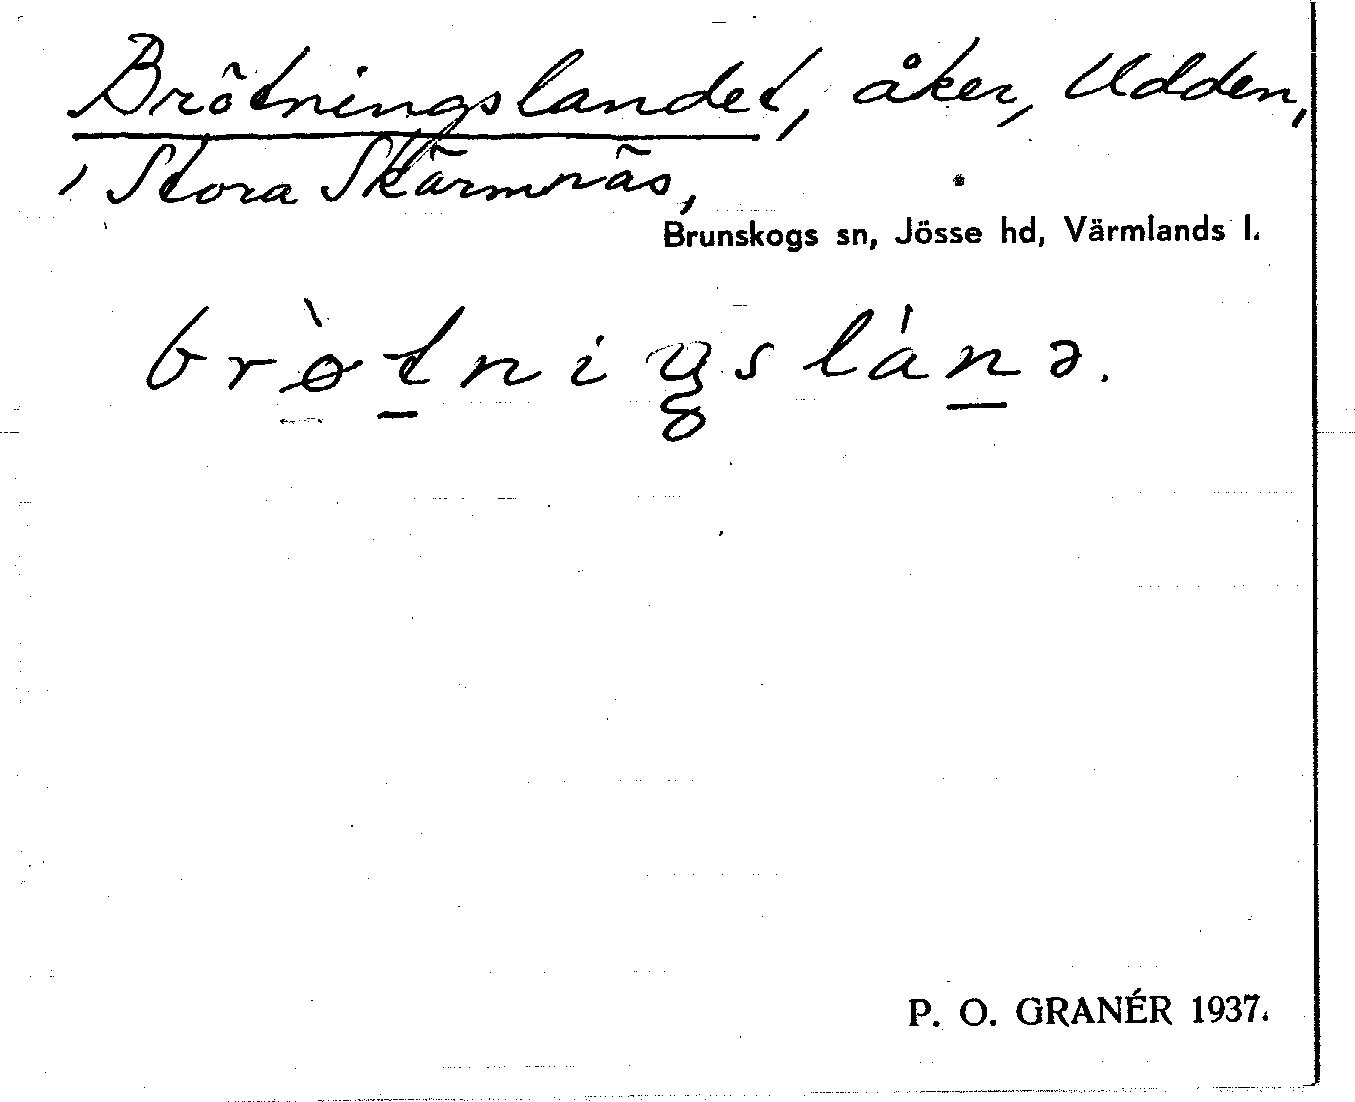 Brötningslandet, åker, Udden,
Stora Skärmnäs,
Brunskogs sn, Jösse hd, Värmlands l.
brø̀tniŋslánə.
P. O. GRANÉR 1937.